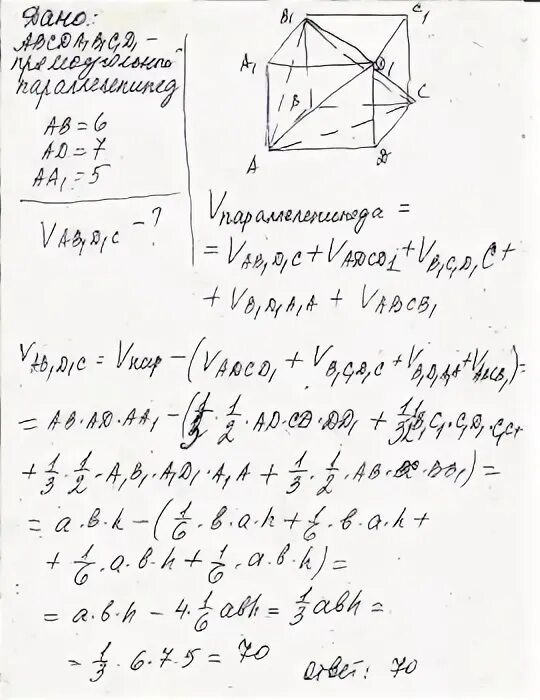 Дано:
ABCDA₁B₁C₁D₁ –
прямоугольный
параллелепипед
AB = 6
AD = 7
AA₁ = 5
V AB₁D₁C – ?
B₁ C₁
A₁ D₁
B C
A D
Vпараллелепипеда =
= V AB₁D₁C + V ADCD1 + V B₁C₁D₁C +
+ V B₁D₁A₁A + V ABCB₁
V AB₁D₁C = Vпар – (V ADCD₁ + V B₁C₁D₁C + V B₁D₁A₁A + V ABCB₁) =
= AB · AD · AA₁ – (1/3 · 1/2 · AD · CD · DD₁ + 1/3 1/2 B₁C₁ · C₁D₁ · C₁C +
+ 1/3 · 1/2 · A₁B₁ · A₁D₁ · A₁A + 1/3 · 1/2 · AB · BC · BB₁) =
= a · b · h – (1/6 · b · a · h + 1/6 · b · a · h +
+ 1/6 · a · b · h + 1/6 · a · b · h) =
= a · b · h – 4 · 1/6 abh = 1/3 abh =
= 1/3 · 6 · 7 · 5 = 70
ответ: 70